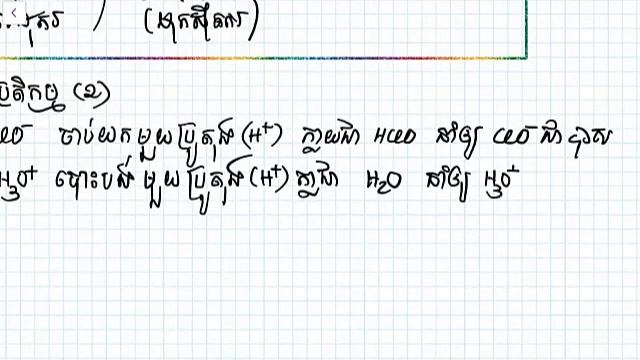 (អុកស៊ីតករ)
ប្រតិកម្ម (2)
ClO⁻ ចាប់យកមួយប្រូតុង (H⁺) ក្លាយជា HClO នាំឲ្យ ClO⁻ ជាបាស
H₃O⁺ បោះបង់មួយប្រូតុង (H⁺) ក្លាជា H₂O នាំឲ្យ H₃O⁺